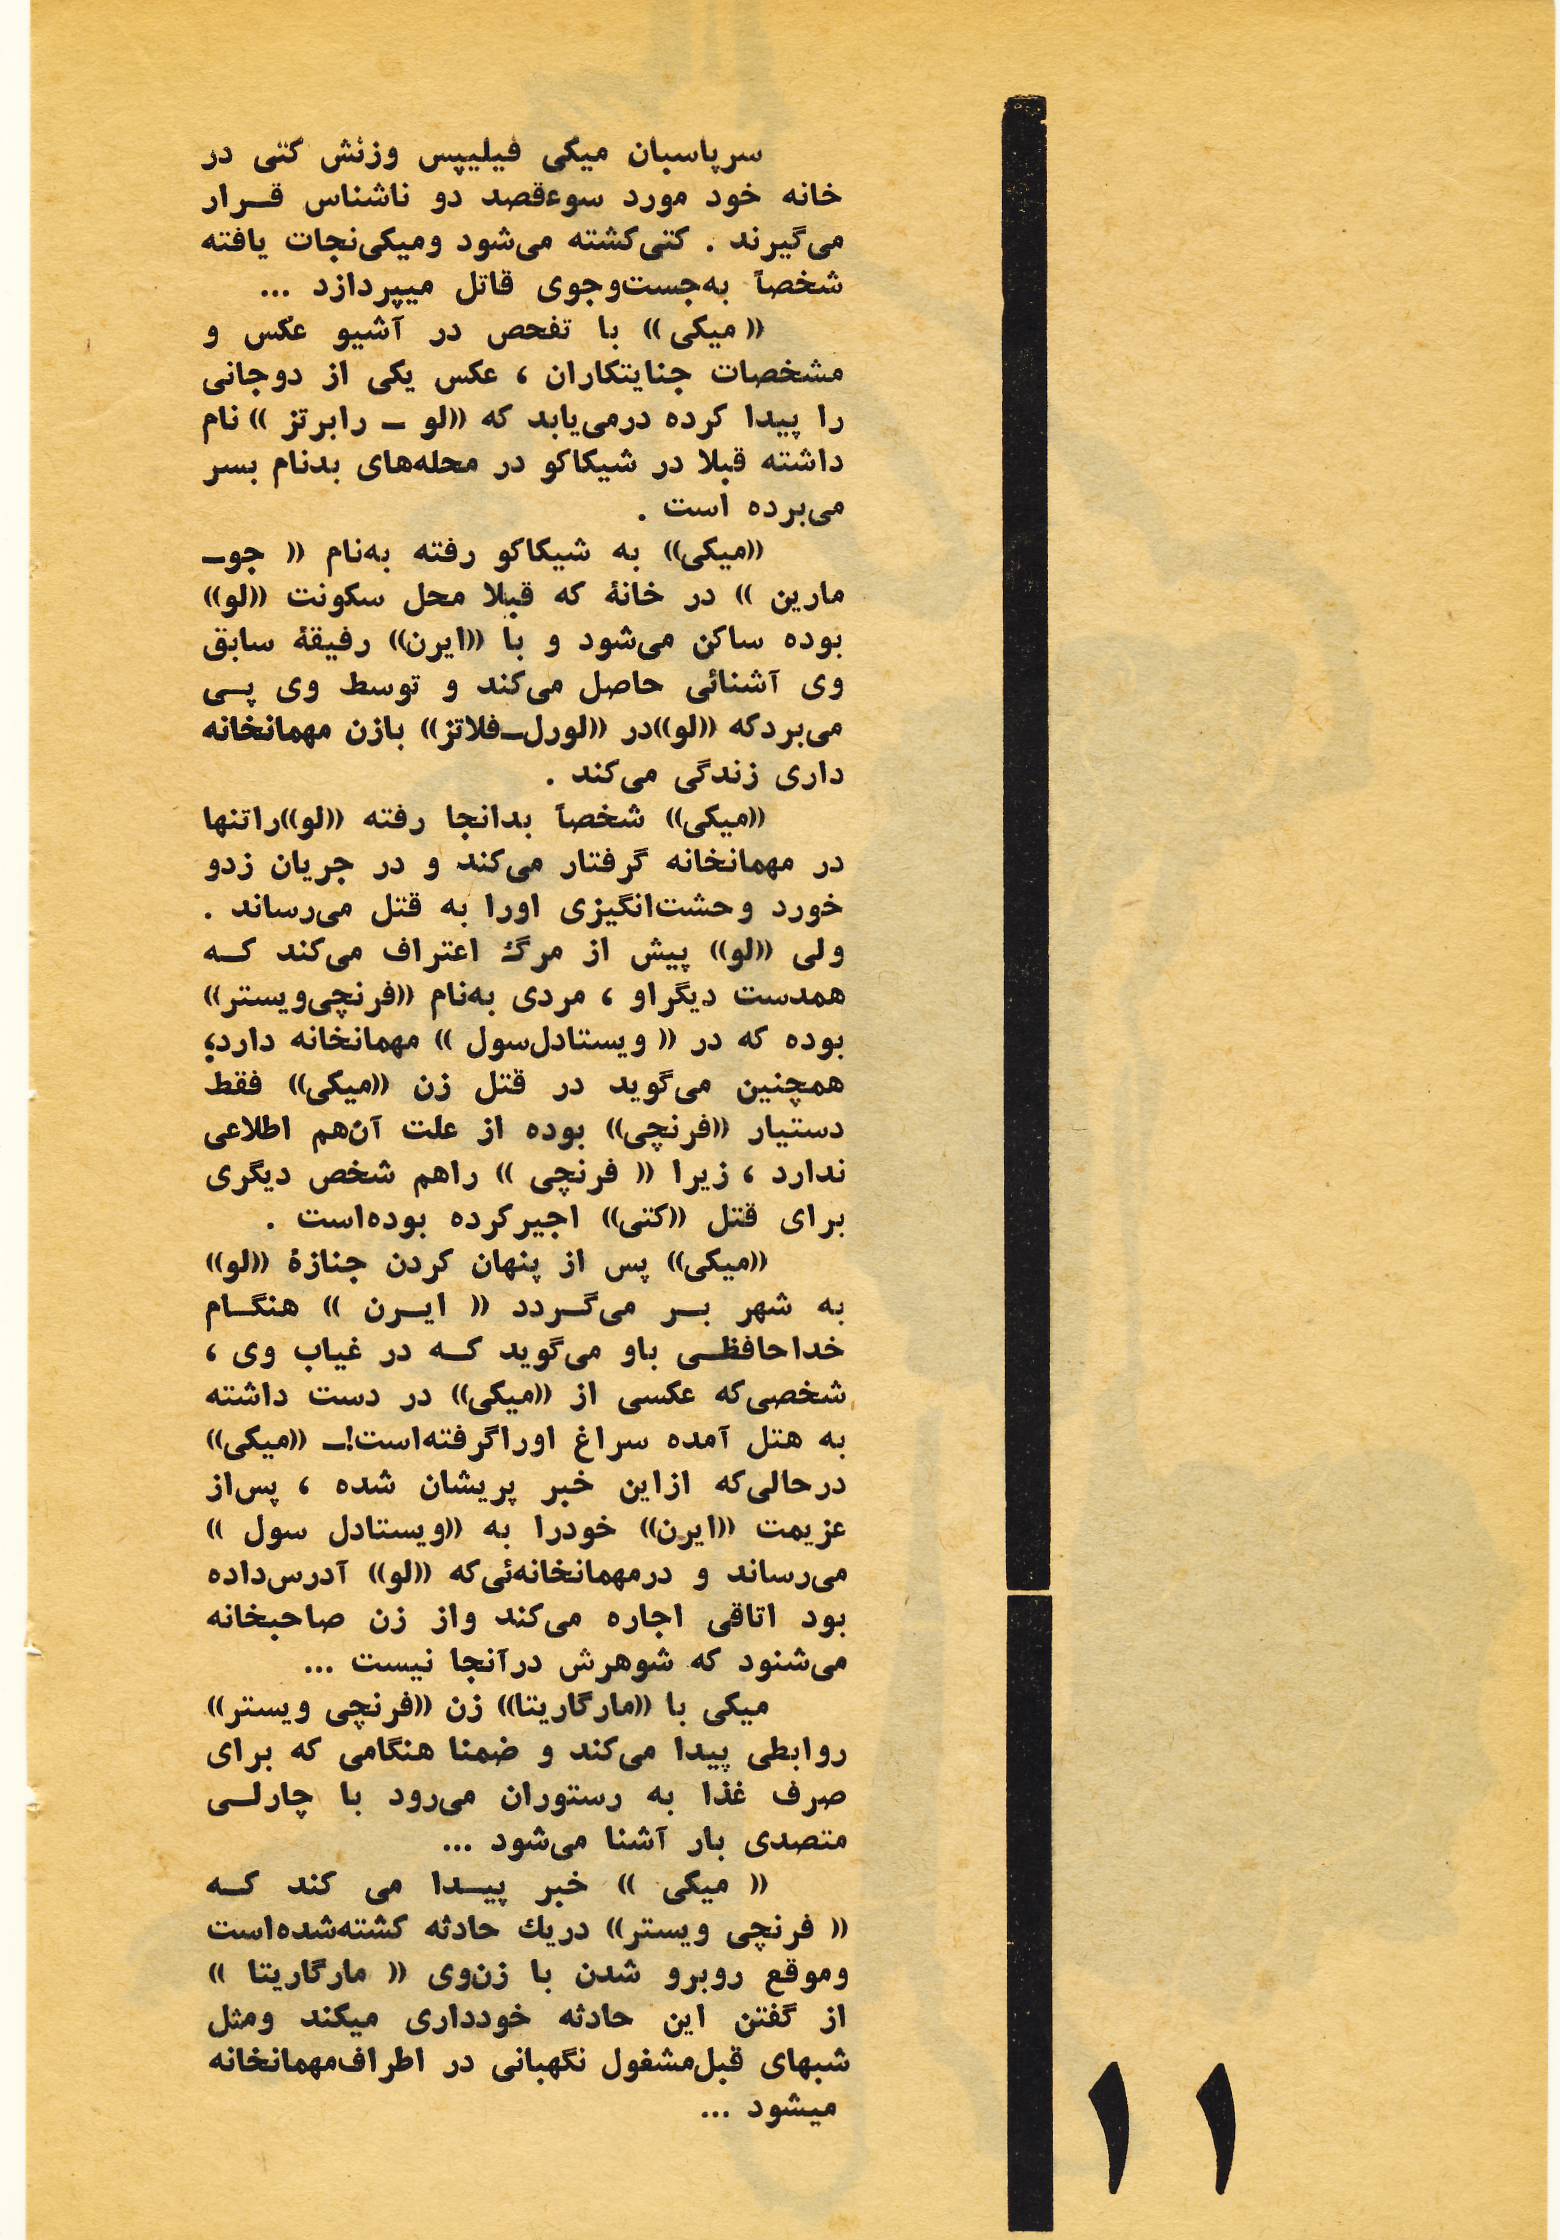 سرپاسبان میکی فیلیپس وزنش کتی در
خانه خود مورد سوءقصد دو ناشناس قــرار
می‌گیرند . کتی‌کشته می‌شود ومیکی‌نجات یافته
شخصاً به‌جست‌وجوی قاتل میپردازد ...
((میکی)) با تفحص در آشیو عکس و
مشخصات جنایتکاران ، عکس یکی از دوجانی
را پیدا کرده درمی‌یابد که ((لو ــ رابرتز )) نام
داشته قبلا در شیکاکو در محله‌های بدنام بسر
می‌برده است .
((میکی)) به شیکاکو رفته به‌نام (( جوــ
مارین )) در خانهٔ که قبلا محل سکونت ((لو))
بوده ساکن می‌شود و با ((ایرن)) رفیقهٔ سابق
وی آشنائی حاصل می‌کند و توسط وی پــی
می‌بردکه ((لو))در ((لورل‌ــ‌فلاتز)) بازن مهمانخانه
داری زندگی می‌کند .
((میکی)) شخصاً بدانجا رفته ((لو))راتنها
در مهمانخانه گرفتار می‌کند و در جریان زدو
خورد وحشت‌انگیزی اورا به قتل می‌رساند .
ولی ((لو)) پیش از مرگ اعتراف می‌کند کــه
همدست دیگراو ، مردی به‌نام ((فرنچی‌ویستر))
بوده که در (( ویستادل‌سول )) مهمانخانه دارد؛
همچنین می‌گوید در قتل زن ((میکی)) فقط
دستیار ((فرنچی)) بوده از علت آن‌هم اطلاعی
ندارد ، زیرا (( فرنچی )) راهم شخص دیگری
برای قتل ((کتی)) اجیرکرده بوده‌است .
((میکی)) پس از پنهان کردن جنازهٔ ((لو))
به شهر بــر می‌گــردد (( ایــرن )) هنگــام
خداحافظــی باو می‌گوید کــه در غیاب وی ،
شخصی‌که عکسی از ((میکی)) در دست داشته
به هتل آمده سراغ اوراگرفته‌است!ــ ((میکی))
درحالی‌که ازاین خبر پریشان شده ، پس‌از
عزیمت ((ایرن)) خودرا به ((ویستادل سول ))
می‌رساند و درمهمانخانه‌ئی‌که ((لو)) آدرس‌داده
بود اتاقی اجاره می‌کند واز زن صاحبخانه
می‌شنود که شوهرش درآنجا نیست ...
میکی با ((مارگاریتا)) زن ((فرنچی ویستر))
روابطی پیدا می‌کند و ضمنا هنگامی که برای
صرف غذا به رستوران می‌رود با چارلــی
متصدی بار آشنا می‌شود ...
(( میکی )) خبر پیــدا می کند کــه
(( فرنچی ویستر)) دریك حادثه کشته‌شده‌است
وموقع روبرو شدن با زن‌وی (( مارگاریتا ))
از گفتن این حادثه خودداری میکند ومثل
شبهای قبل‌مشغول نگهبانی در اطراف‌مهمانخانه
میشود ...
۱۱